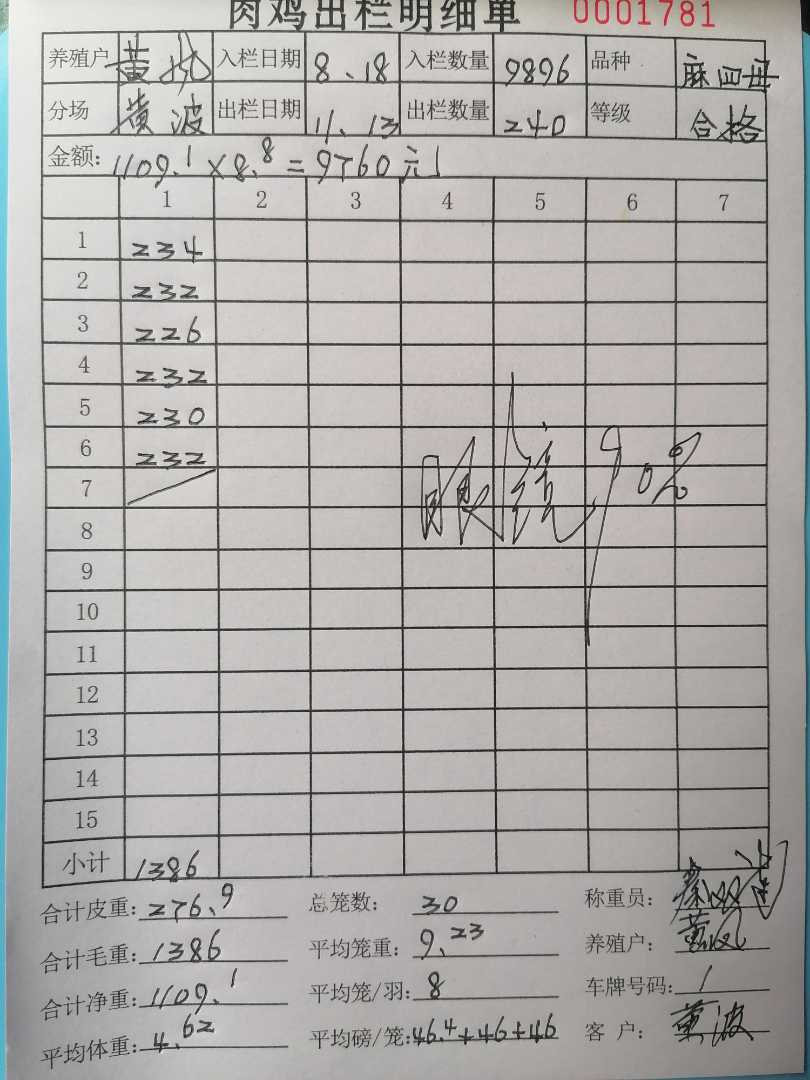 肉鸡出栏明细单 0001781
养殖户 黄 入栏日期 8.18 入栏数量 9896 品种 麻四母
分场 黄波 出栏日期 11.13 出栏数量 240 等级 合格
金额: 1109.1×8.8=9760元
1 2 3 4 5 6 7
1 234
2 232
3 226
4 232
5 230
6 232
7
8
9
10
11
12
13
14
15
小计 1386
眼 90%
合计皮重: 276.9 总笼数: 30 称重员:
合计毛重: 1386 平均笼重: 9.23 养殖户: 黄
合计净重: 1109.1 平均笼/羽: 8 车牌号码: /
平均体重: 4.62 平均磅/笼: 46.4+46+46 客 户: 黄波